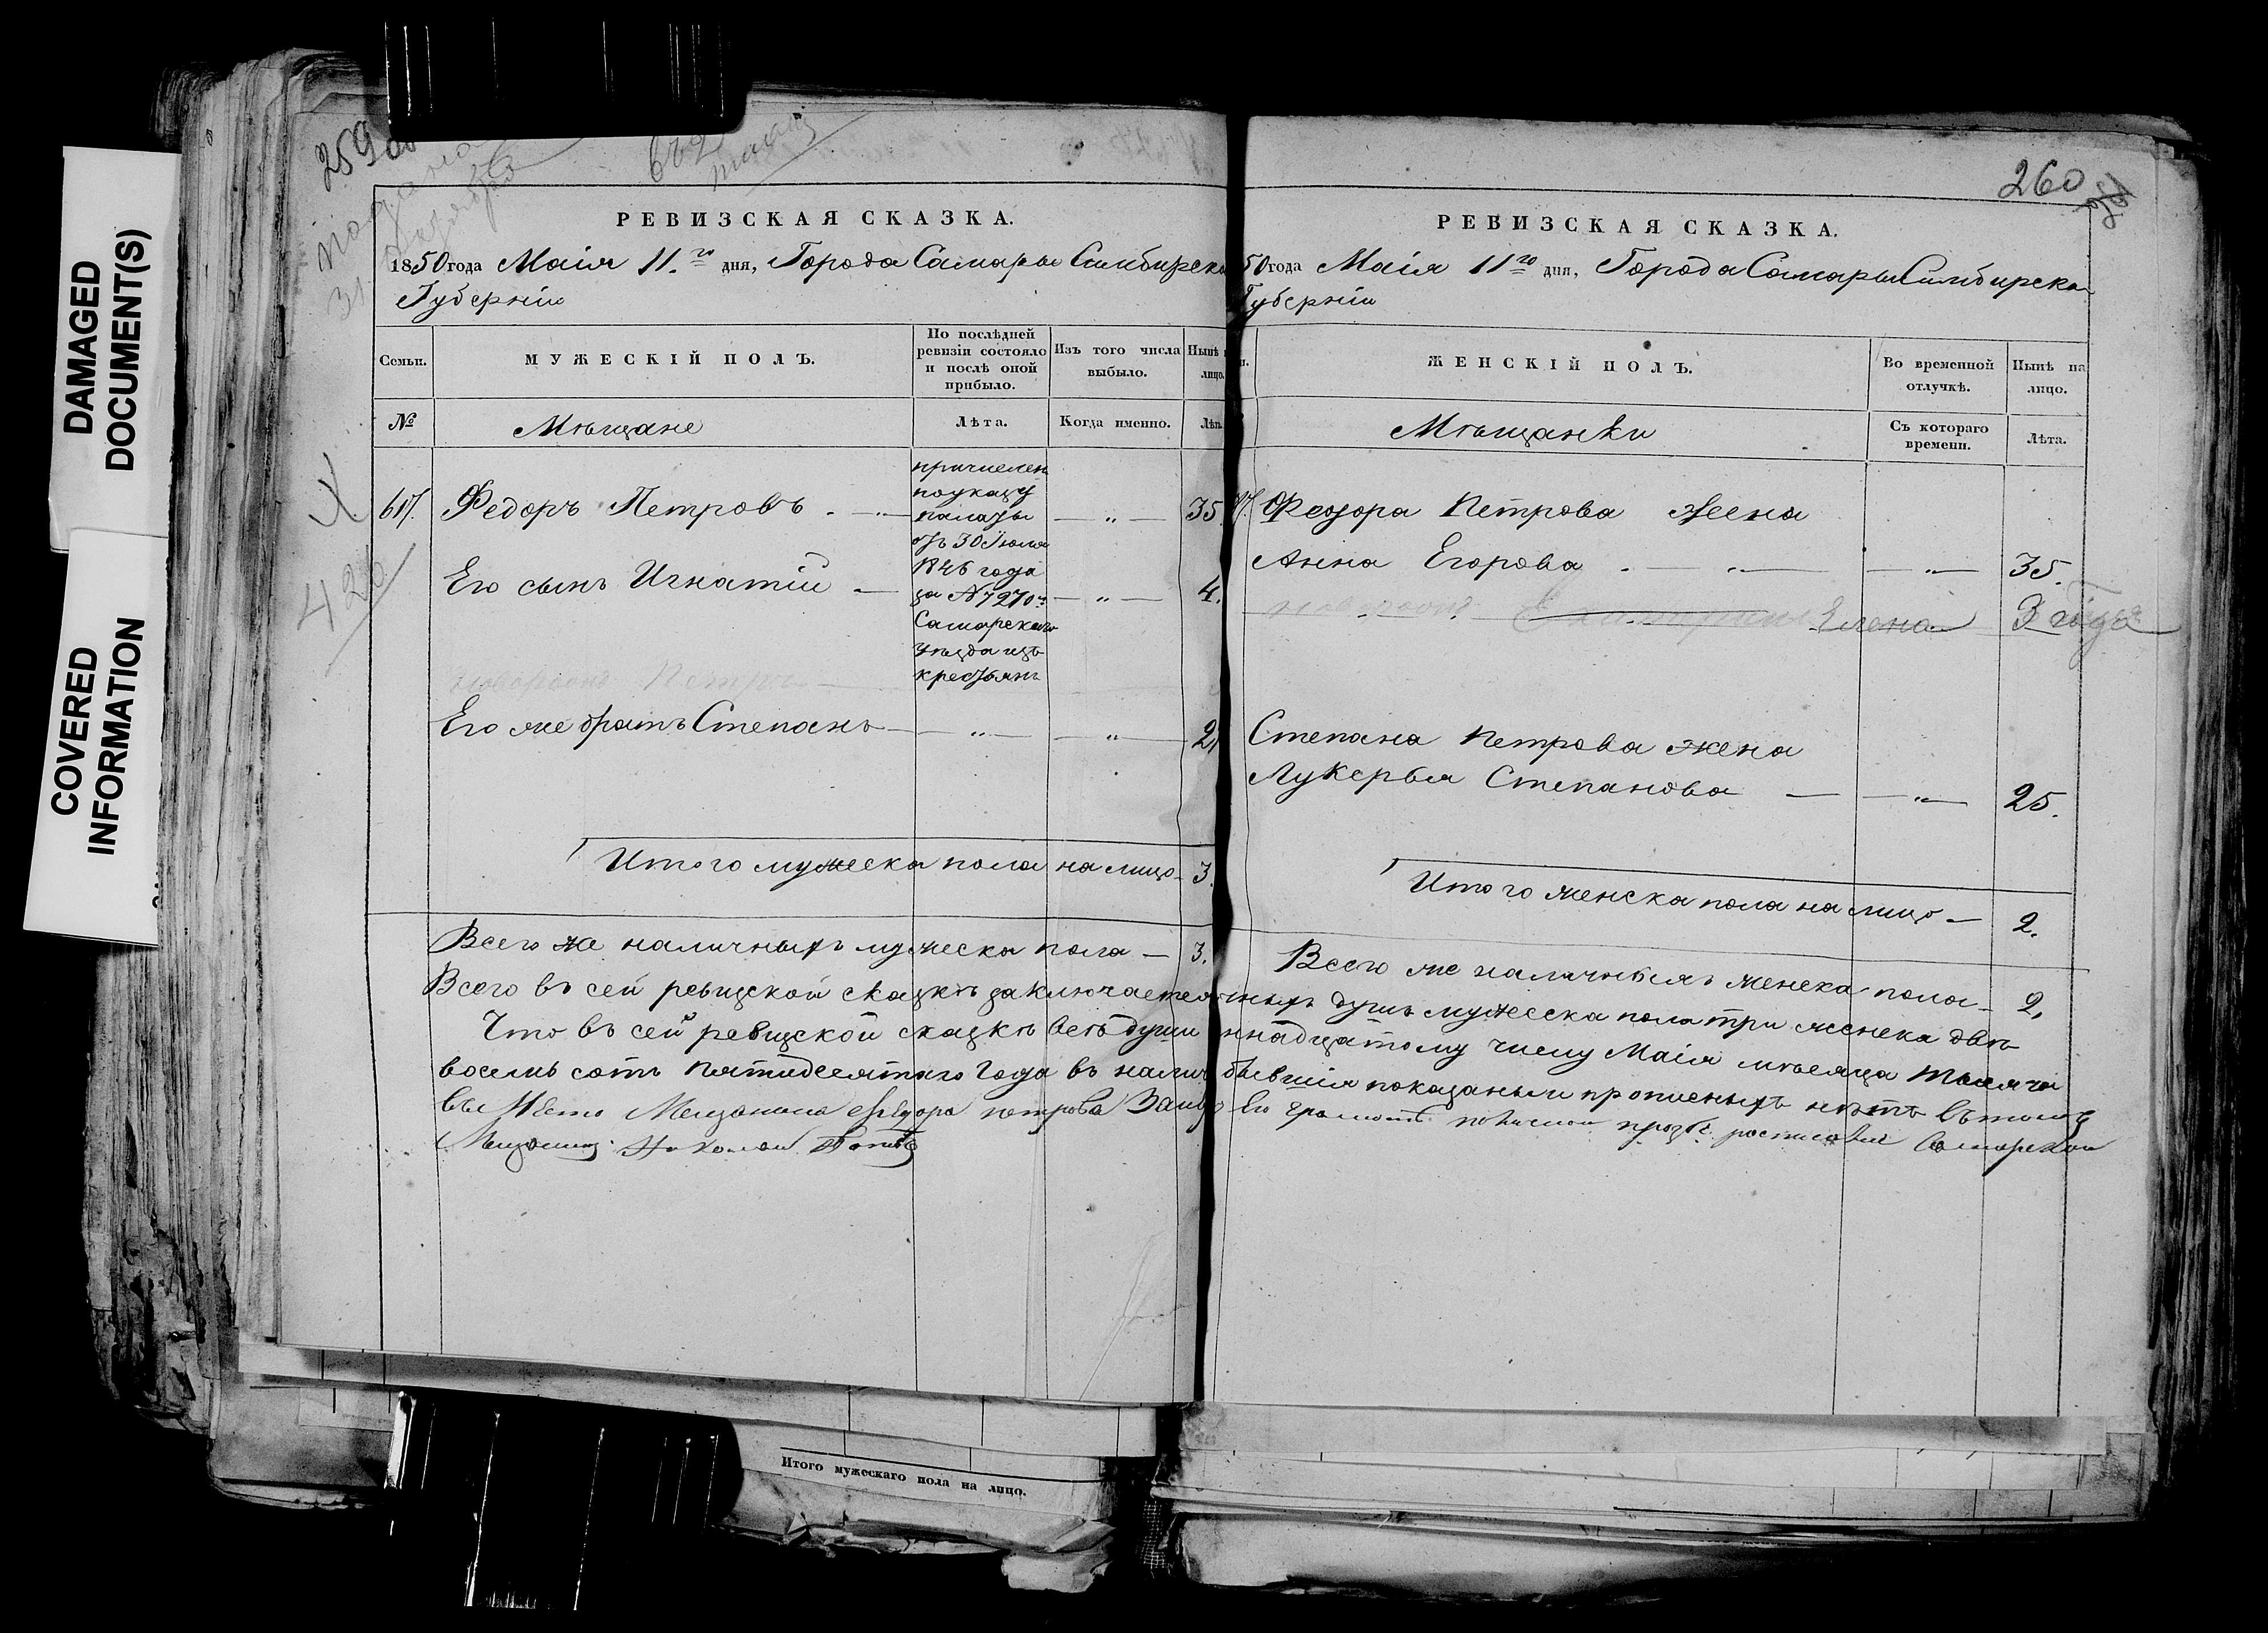 DAMAGED
DOCUMENT(S)
COVERED
INFORMATION
259об
РЕВИЗСКАЯ СКАЗКА.
1850 года Маія 11.го дня, Города Самары Симбирско
Губерніи
Семьи.
МУЖЕСКІЙ ПОЛЪ.
По послѣдней
ревизіи состояло
и послѣ оной
прибыло.
Изъ того числа
выбыло.
Нынѣ
лицо.
№
Мѣщане
Лѣта.
Когда именно.
Лѣт.
617.
Федоръ Петровъ
35.
причислен
по указу
палаты
отъ 30 Іюля
1846 года
за № 7270м
Самарскаго
уѣзда изъ
крестьянъ
Его сынъ Игнатій
4.
новорожд Петръ
Его же братъ Степанъ
21
Итого мужеска пола на лицо
3.
Всего же наличныхъ мужеска пола
3.
Всего въ сей ревизской сказкѣ заключается
Что въ сей ревизской сказкѣ всѣ души
восемь сотъ пятидесятаго года въ налич
Мещанина Федора петрова
Николай
420
260
РЕВИЗСКАЯ СКАЗКА.
50 года Маія 11го дня, Города Самары Симбирско
Губерніи
ЖЕНСКІЙ ПОЛЪ.
Во временной
отлучкѣ.
Нынѣ на
лицо.
Мѣщанки
Съ котораго
времени.
Лѣта.
Федора Петрова жена
Анна Егорова
35.
Елена
3 года
Степана Петрова жена
Лукерья Степанова
25.
Итого женска пола на лицо
2.
Всего же наличныхъ женска пола
2.
ныхъ душъ мужеска пола три женска двѣ
ннадцатому числу Маія мѣсяца тысяча
бывшія показаны и прописныхъ нѣтъ въ томъ
Самарской
Итого мужескаго пола на лицо.